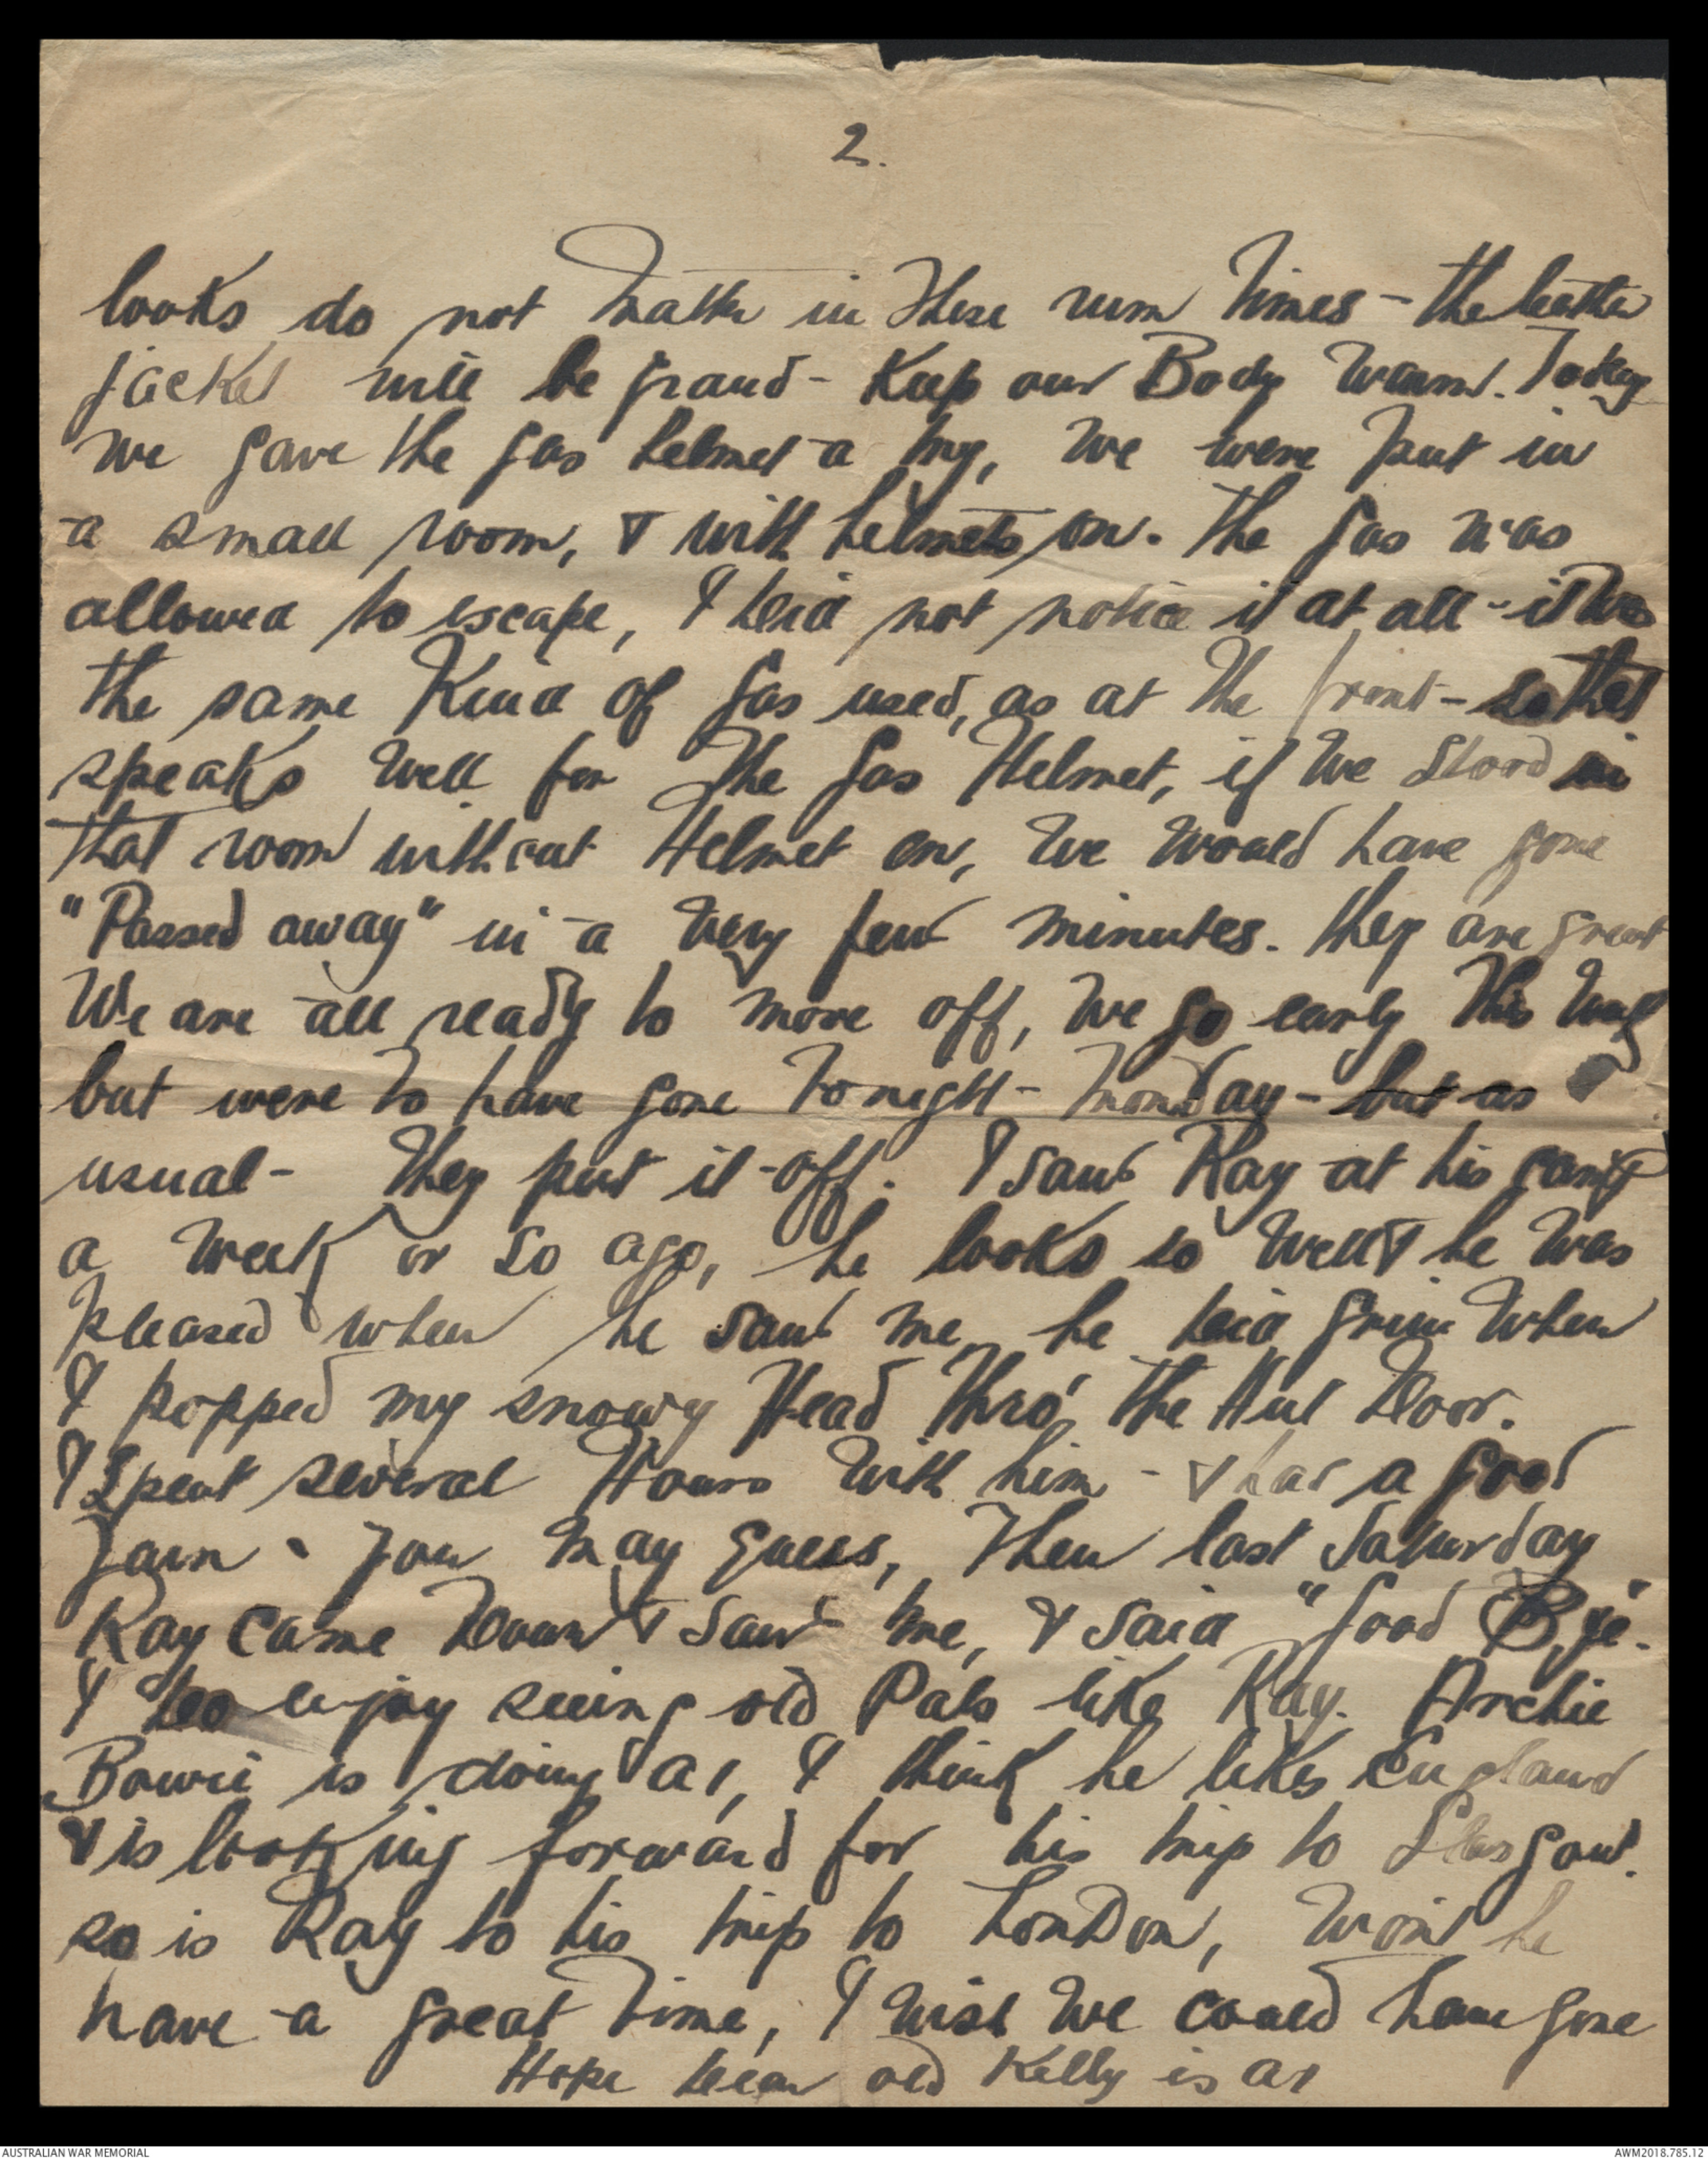 2.
looks do not matter in these rum times - the leather
jacket will be grand - Keep our Body Warm. Today
we gave the gas helmet a try, we were put in
a small room, & with helmets on. The gas was
allowed to escape, I did not notice it at all - it was
the same Kind of gas used, as at the front - so that
speaks well for the gas Helmet, if we stood in
that room without Helmet on, we would have gone
"Passed away" in a very few minutes. they are great
We are all ready to move off, we go early this
but were to have gone tonight - Monday - but as
usual - they put it off. I saw Ray at his camp
a week or so ago, he looks so well & he was
pleased when he saw me, he did grin when
I popped my snowy Head thro' the Hut Door.
I spent several Hours with him - & had a good
yarn - you may guess, then last Saturday
Ray came Down & saw me, & said "Good Bye".
I do enjoy seeing old Pals like Ray. Archie
Bowie is doing A1, I think he likes England
& is looking forward for his trip to Glasgow.
so is Ray to his trip to London, wont he
have a great time, I wish we could have gone
Hope dear old Kelly is A1
AUSTRALIAN WAR MEMORIAL
AWM2018.785.12